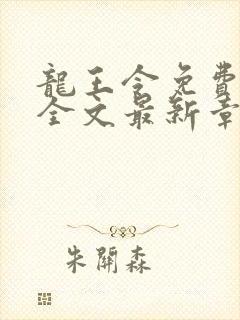 龍王令免費
全文最新章
朱開森